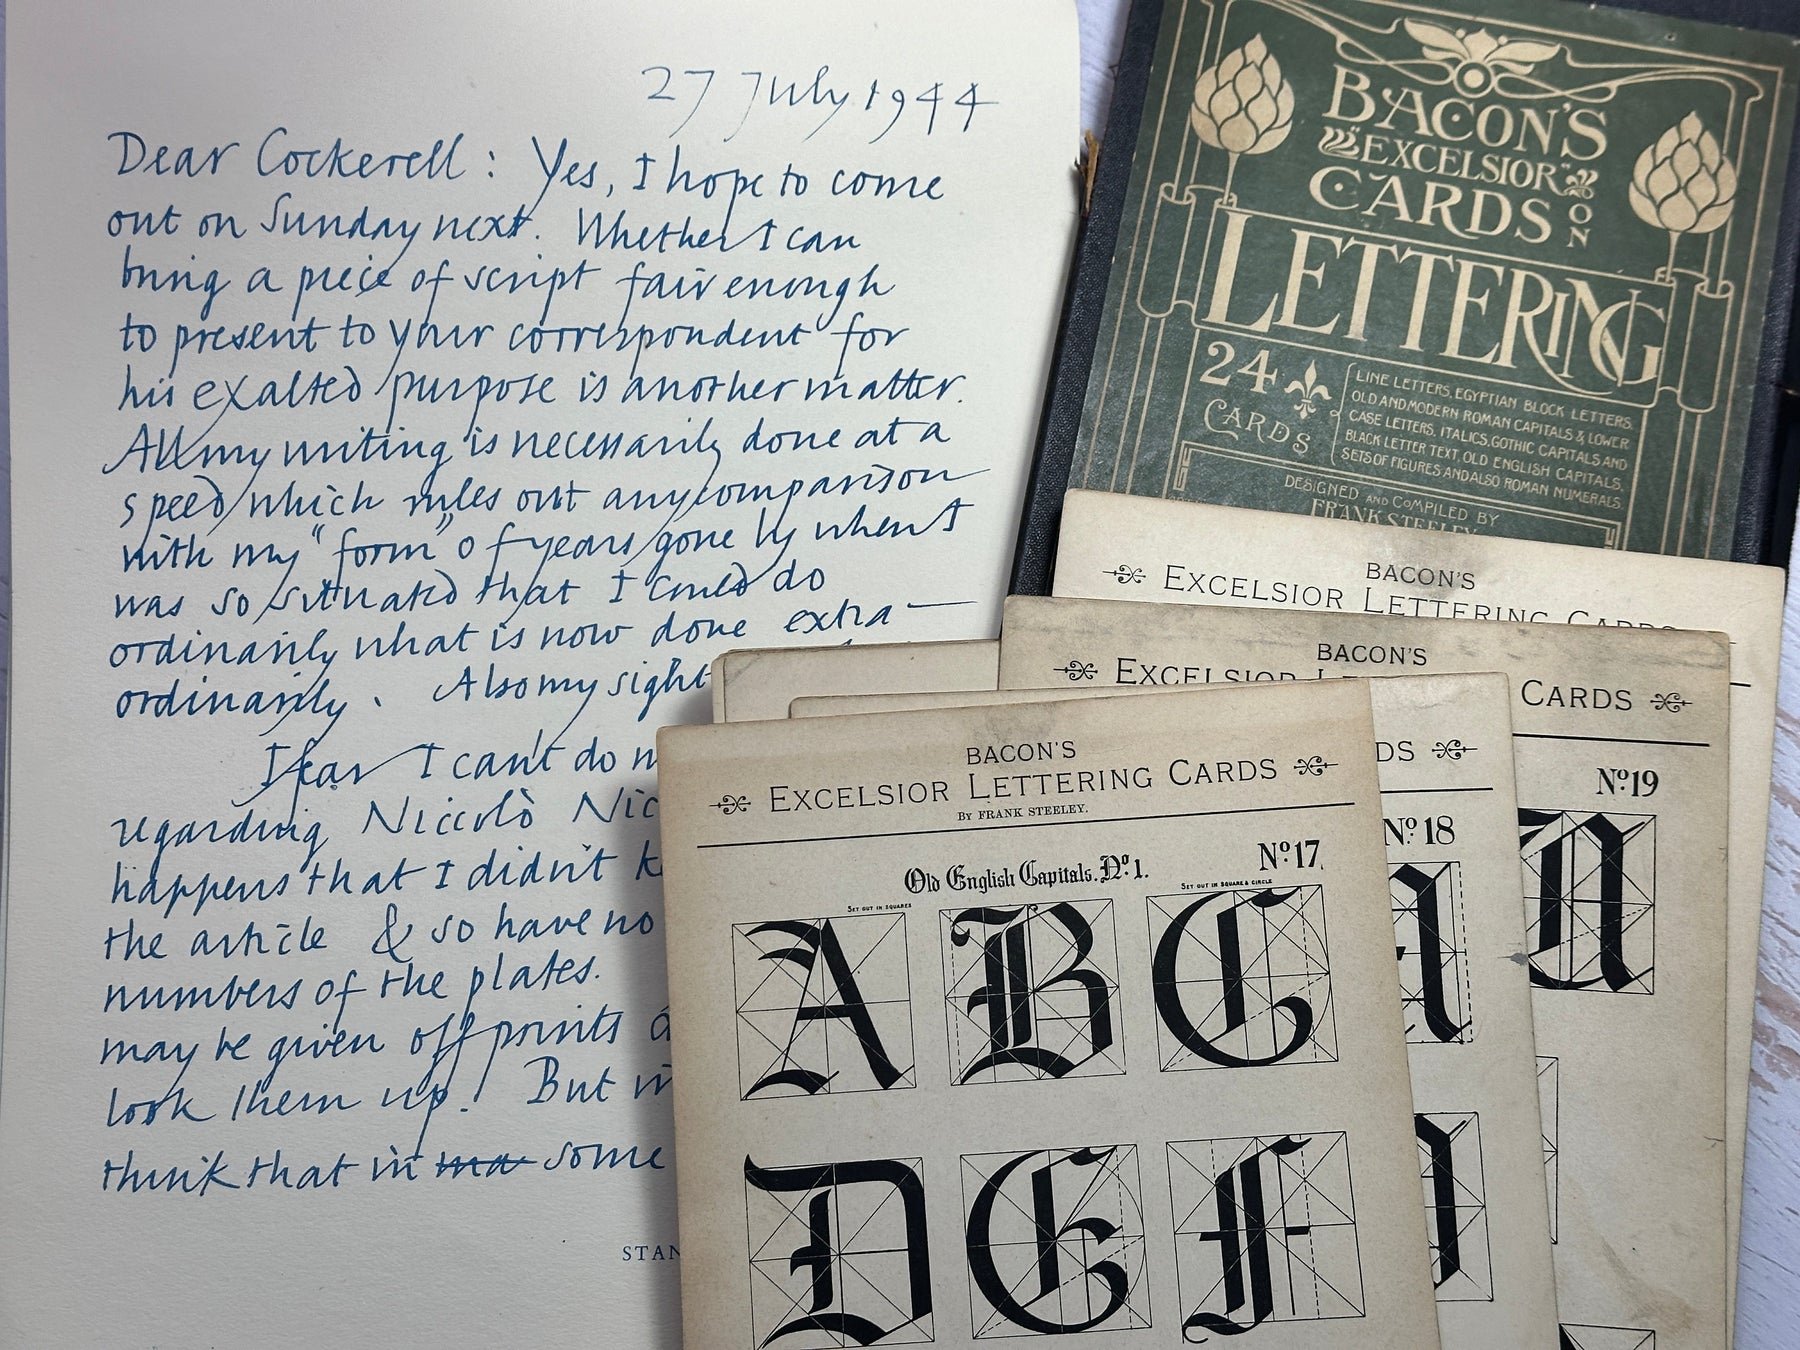 27 July 1944
Dear Cockerell: Yes, I hope to come
out on Sunday next. Whether I can
bring a piece of script fair enough
to present to your correspondent for
his exalted purpose is another matter.
All my writing is necessarily done at a
speed which rules out any comparison
with my "form" of years gone by when I
was so situated that I could do
ordinarily what is now done extra-
ordinarily. Also my sight
I fear I can't do
regarding Niccolò Nic
happens that I didn't k
the article & so have no
numbers of the plates.
may be given off prints
look them up! But in
think that in ma some
STAN
BACON'S
"EXCELSIOR"
CARDS ON
LETTERING
24 CARDS
LINE LETTERS, EGYPTIAN BLOCK LETTERS,
OLD AND MODERN ROMAN CAPITALS & LOWER
CASE LETTERS, ITALICS, GOTHIC CAPITALS AND
BLACK LETTER TEXT, OLD ENGLISH CAPITALS,
SETS OF FIGURES AND ALSO ROMAN NUMERALS.
DESIGNED AND COMPILED BY
FRANK STEELEY
BACON'S
EXCELSIOR LETTERING CARDS
BACON'S
EXCELSIOR CARDS
No. 19
DS
No. 18
BACON'S
EXCELSIOR LETTERING CARDS
BY FRANK STEELEY.
Old English Capitals. No. 1.
No. 17.
SET OUT IN SQUARES
SET OUT IN SQUARE & CIRCLE
A B C
D G F
A